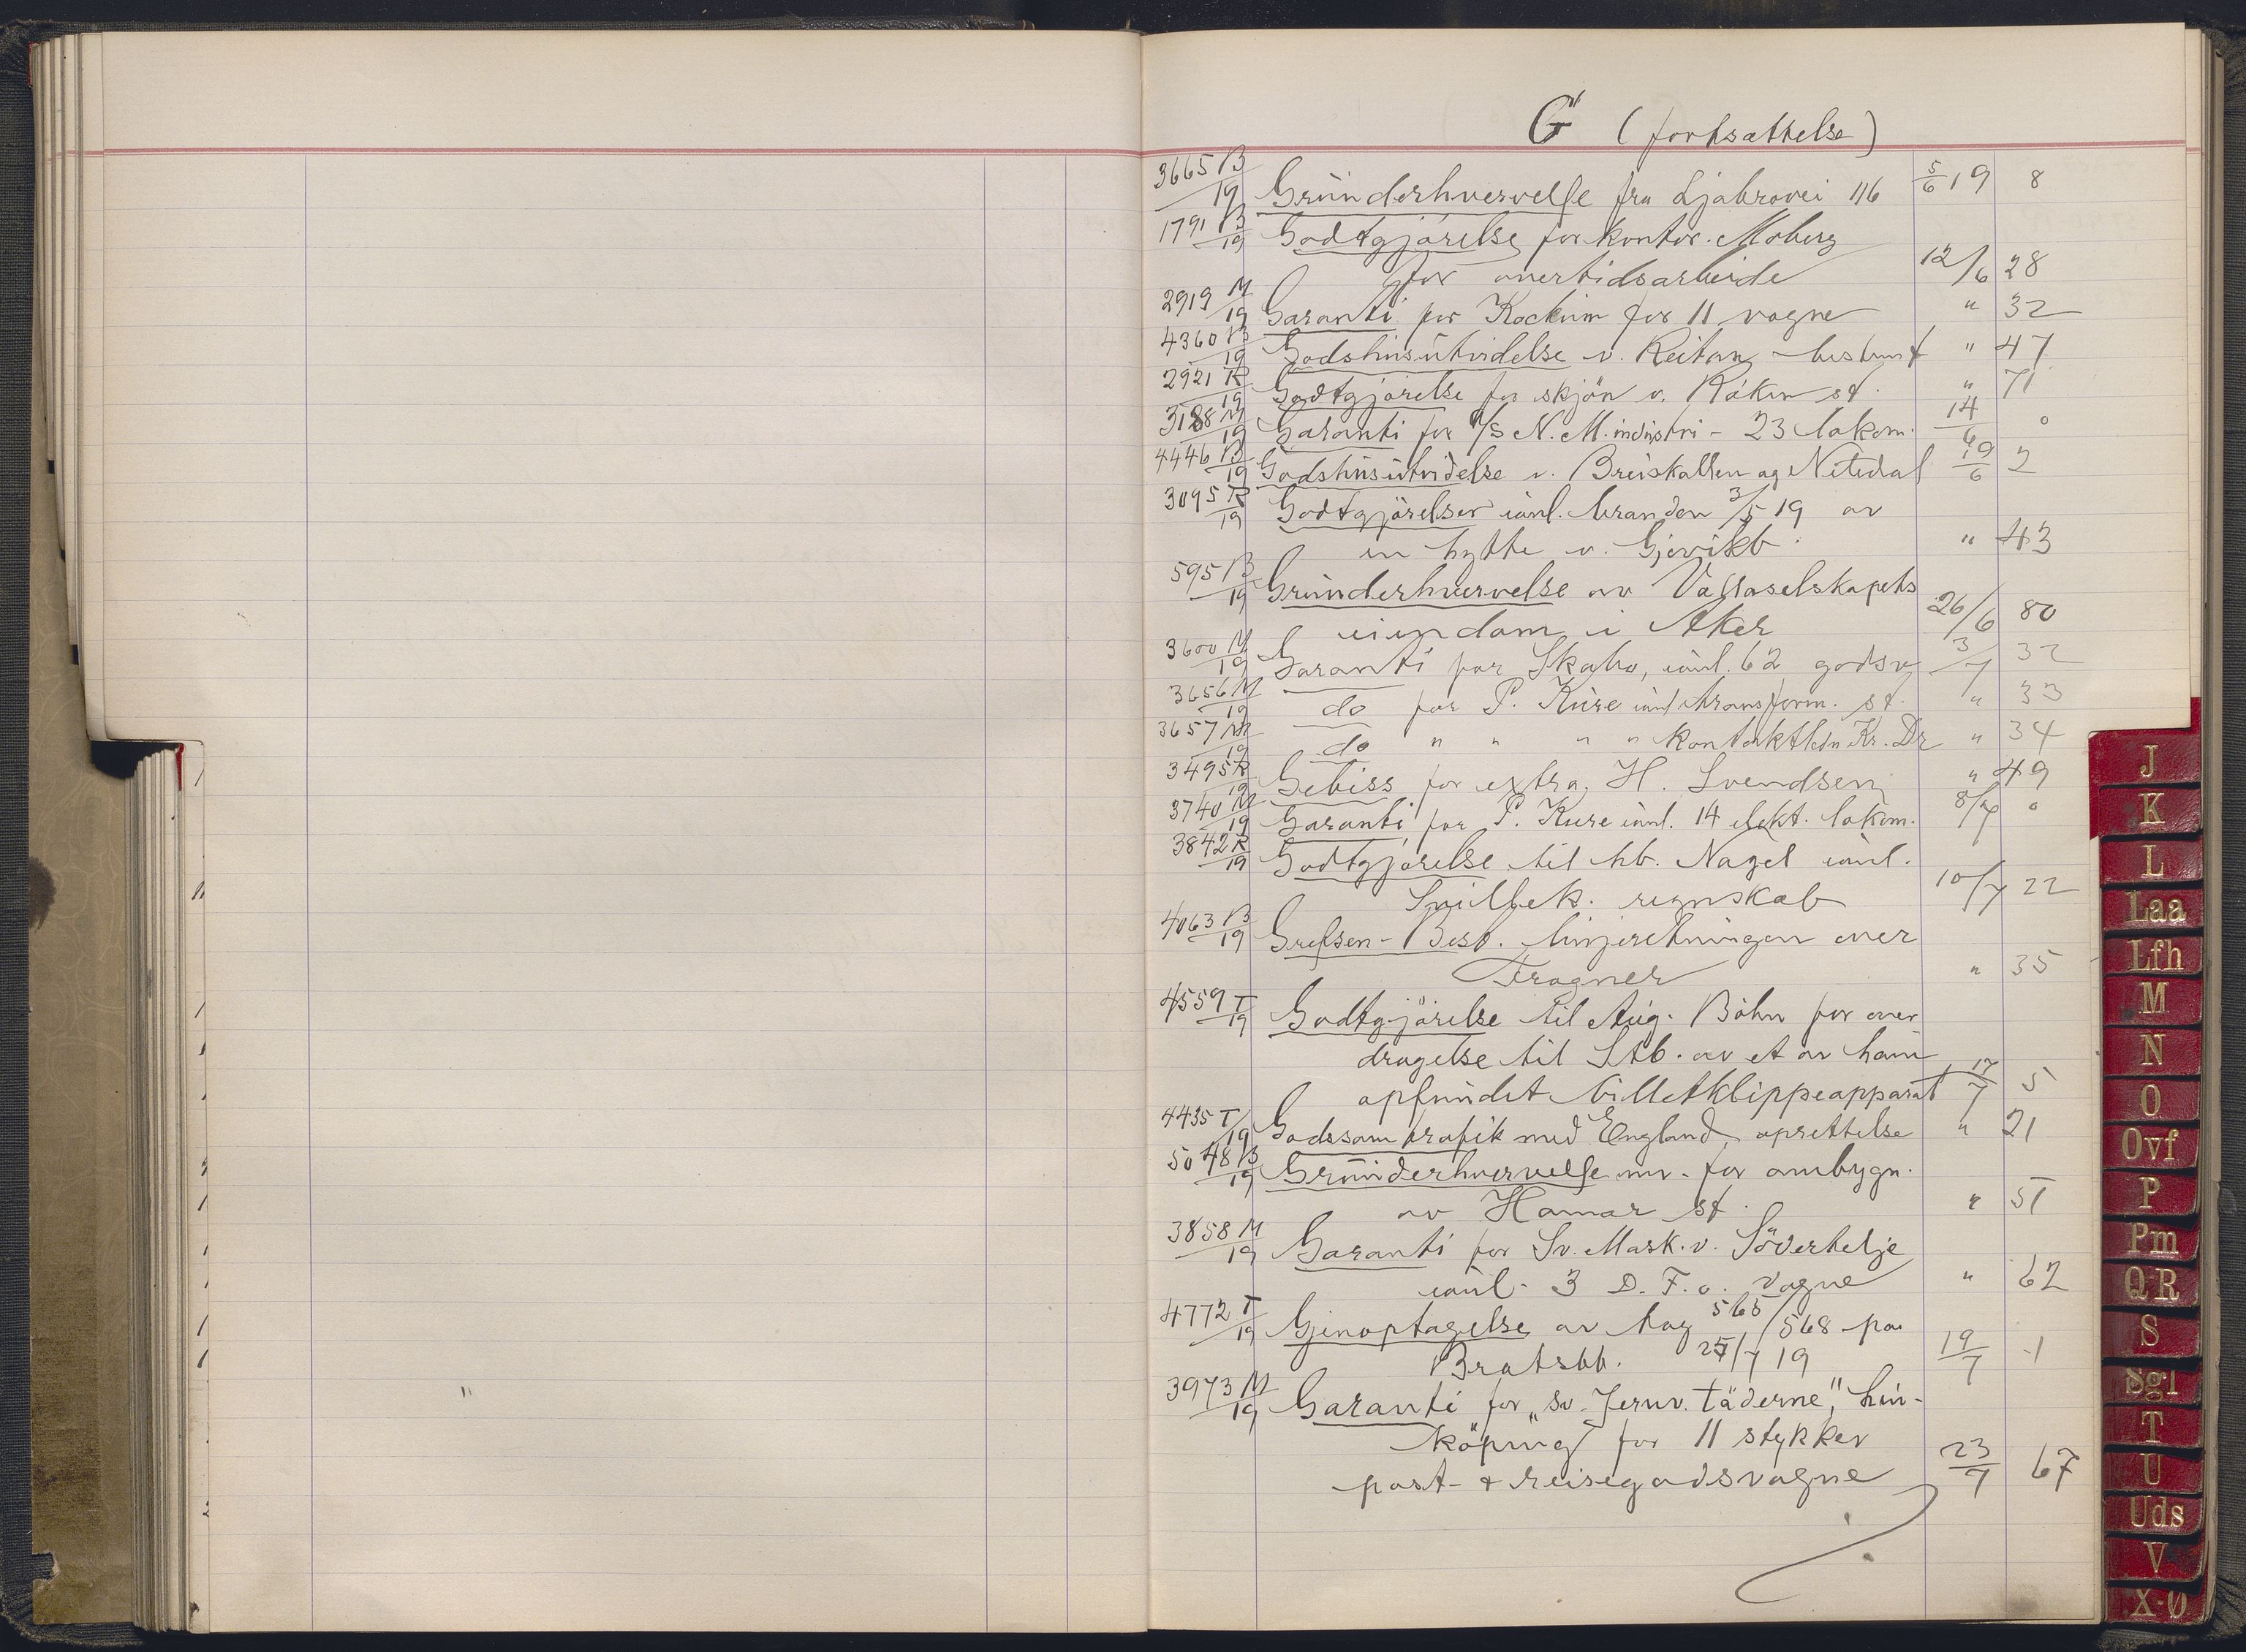 G (fortsættelse)
3665 B/19 Grunderhvervelse fra Ljabrovei 116 5/6 19 8
1791 B/19 Godtgjørelse for kontor. Moberg
for overtidsarbeide 12/6 28
2919 M/19 Garanti for Kockum for 11 vogne " 32
4360 B/19 Godshusutvidelse v. Reitan - " 47
2921 R/19 Godtgjørelse for skjøn v. Røken st. " 71
3188 M/19 Garanti for A/S N. M. industri - 23 lokom. 14/6 0
4446 B/19 Godshusutvidelse v. Breiskallen og Nitedal 19/6 2
3095 R/19 Godtgjørelser ianl. branden 3/5 19 av
en hytte v. Gjøvikb. " 43
595 B/19 Grunderhvervelse av Valløselskapets
eiendom i Aker 26/6 80
3600 M/19 Garanti for Skabo, ianl. 62 godsv. 3/7 32
3656 M/19 do for P. Kure ianl transform. st. " 33
3657 M/19 do " " " " kontaktledn Kr. Dr " 34
3495 R/19 Gebiss for extra. H. Svendsen " 49
3740 M/19 Garanti for P. Kure ianl. 14 elekt. lokom. 8/7 0
3842 R/19 Godtgjørelse til hb. Nagel ianl.
regnskab 10/7 22
4063 B/19 Grefsen - Best. linjeretningen over
Frogner " 35
4559 T/19 Godtgjørelse til Aug. Bøhn for over
dragelse til Stb. av et av ham
opfundet billetklippeapparat 17/7 5
4435 T/19 Godssamtrafik med England, oprettelse " 21
5048 B/19 Grunderhvervelse mv. for ombygn.
av Hamar st. " 51
3858 M/19 Garanti for Sv. Mask. v. Södertelje
ianl. 3 D. F. o. vogne " 62
4772 T/19 Gjenoptagelse av tog 565/568 paa
Bratsbb. 25/7 19 19/7 1
3973 M/19 Garanti for "Sv. Jernv. täderne", Lin-
köping for 11 stykker
post- & reisegodsvogne 23/7 67
J
K
L
Laa
Lfh
M
N
O
Ovf
P
Pm
QR
S
Sgl
T
U
Uds
V
X-Ø